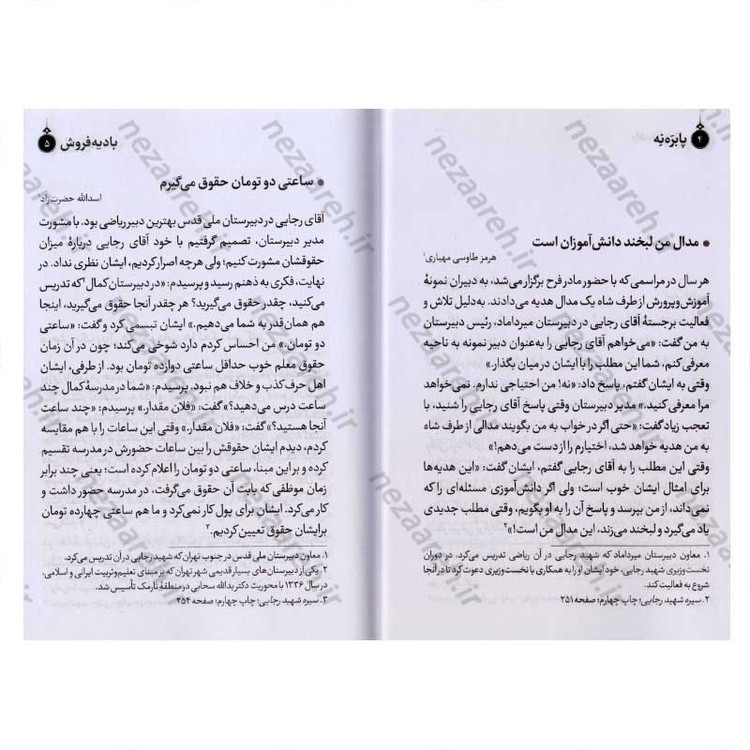 ۴ پابَرَه‌نِه
● مدال من لبخند دانش‌آموزان است
هرمز طاوسی مهیاری۱
هر سال در مراسمی که با حضور مادر فرح برگزار می‌شد، به دبیران نمونهٔ
آموزش‌وپرورش از طرف شاه یک مدال هدیه می‌دادند. به‌دلیل تلاش و
فعالیت برجستهٔ آقای رجایی در دبیرستان میرداماد، رئیس دبیرستان
به من گفت: «می‌خواهم آقای رجایی را به‌عنوان دبیر نمونه به ناحیه
معرفی کنم، شما این مطلب را با ایشان در میان بگذار.»
وقتی به ایشان گفتم، پاسخ داد: «نه! من احتیاجی ندارم. نمی‌خواهد
مرا معرفی کنید.» مدیر دبیرستان وقتی پاسخ آقای رجایی را شنید، با
تعجب زیاد گفت: «حتی اگر در خواب به من بگویند مدالی از طرف شاه
به من هدیه خواهد شد، اختیارم را از دست می‌دهم!»
وقتی این مطلب را به آقای رجایی گفتم، ایشان گفت: «این هدیه‌ها
برای امثال ایشان خوب است؛ ولی اگر دانش‌آموزی مسئله‌ای را که
نمی‌داند، از من بپرسد و پاسخ آن را به او بگویم، وقتی مطلب جدیدی
یاد می‌گیرد و لبخند می‌زند، این مدال من است!»۲
۱. معاون دبیرستان میرداماد که شهید رجایی در آن ریاضی تدریس می‌کرد. در دوران
نخست‌وزیری شهید رجایی، خود ایشان او را به همکاری با نخست‌وزیری دعوت کرد تا در آنجا
شروع به فعالیت کند.
۲. سیره شهید رجایی؛ چاپ چهارم؛ صفحه ۲۵۱
بادیه‌فروش ۵
● ساعتی دو تومان حقوق می‌گیرم
اسدالله حضرت‌زاد
آقای رجایی در دبیرستان ملی قدس بهترین دبیر ریاضی بود. با مشورت
مدیر دبیرستان، تصمیم گرفتیم با خود آقای رجایی دربارهٔ میزان
حقوقشان مشورت کنیم؛ ولی هرچه اصرار کردیم، ایشان نظری نداد. در
نهایت، فکری به ذهنم رسید و پرسیدم: «در دبیرستان کمال۲ که تدریس
می‌کنید، چقدر حقوق می‌گیرید؟ هر چقدر آنجا حقوق می‌گیرید، اینجا
هم همان‌قدر به شما می‌دهیم.» ایشان تبسمی کرد و گفت: «ساعتی
دو تومان.» من احساس کردم دارد شوخی می‌کند؛ چون در آن زمان
حقوق معلم خوب حداقل ساعتی دوازده تومان بود. از طرفی، ایشان
اهل حرف کذب و خلاف هم نبود. پرسیدم: «شما در مدرسهٔ کمال چند
ساعت درس می‌دهید؟» گفت: «فلان مقدار.» پرسیدم: «چند ساعت
آنجا هستید؟» گفت: «فلان مقدار.» وقتی این ساعات را با هم مقایسه
کردم، دیدم ایشان حقوقش را بین ساعات حضورش در مدرسه تقسیم
کرده و بر این مبنا، ساعتی دو تومان را اعلام کرده است؛ یعنی چند برابر
زمان موظفی که بابت آن حقوق می‌گرفت، در مدرسه حضور داشت و
کار می‌کرد. ایشان برای پول کار نمی‌کرد و ما هم ساعتی چهارده تومان
برایشان حقوق تعیین کردیم.۳
۱. معاون دبیرستان ملی قدس در جنوب تهران که شهید رجایی در آن تدریس می‌کرد.
۲. یکی از دبیرستان‌های بسیار قدیمی شهر تهران که بر مبنای تعلیم‌وتربیت ایرانی و اسلامی،
در سال ۱۳۳۶ با محوریت دکتر یدالله سحابی در منطقهٔ نارمک تأسیس شد.
۳. سیره شهید رجایی؛ چاپ چهارم؛ صفحه ۲۵۴
nezaareh.ir